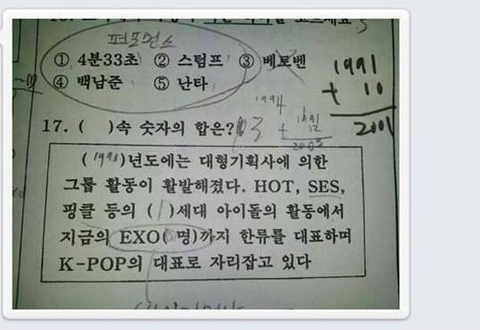 퍼포먼스
① 4분33초 ② 스텀프 ③ 베토벤
④ 백남준 ⑤ 난타
1991
+ 10
2001
17. ( )속 숫자의 합은?
13
1994
1991
+ 12
2003
( )년도에는 대형기획사에 의한
그룹 활동이 활발해졌다. HOT, SES,
핑클 등의 (1)세대 아이돌의 활동에서
지금의 EXO( 명)까지 한류를 대표하며
K-POP의 대표로 자리잡고 있다